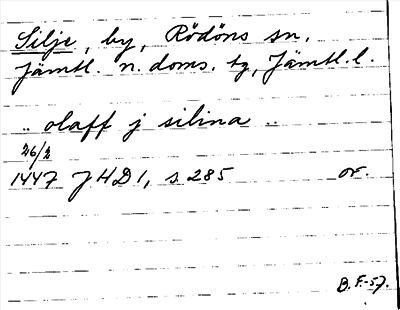 Silje, by, Rödöns sn.
Jämtl. n. doms. tg, Jämtl. l.
.. olaff j silina ..
26/2
1447 JHD 1, s 285 or.
B. F.-57.